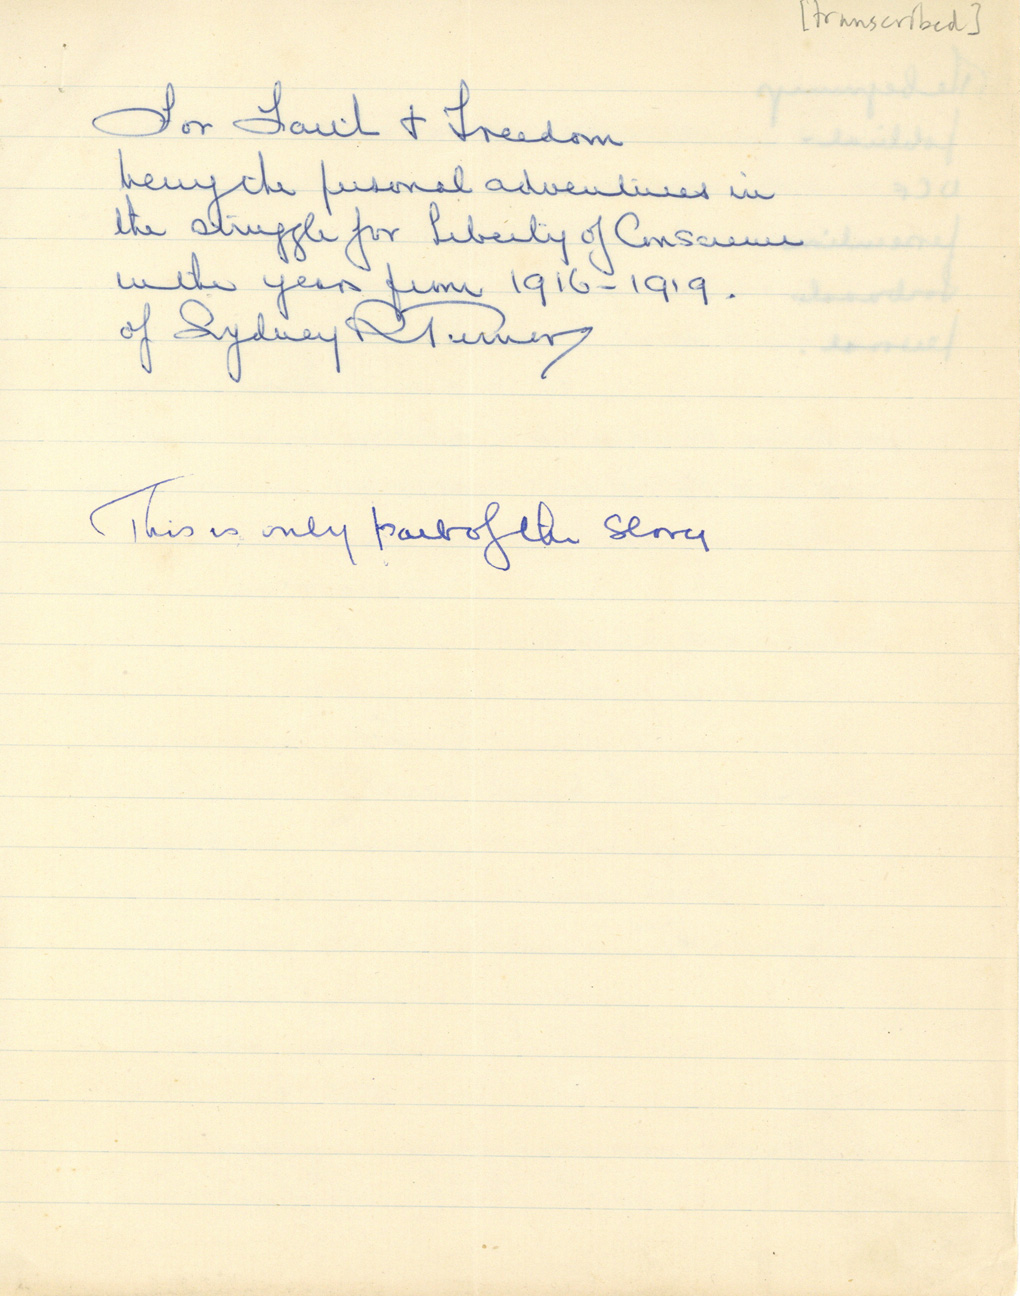 [transcribed]
For Faith + Freedom
being the personal adventures in
the struggle for Liberty of Conscience
in the years from 1916-1919.
of Sydney R Turner
This is only part of the story